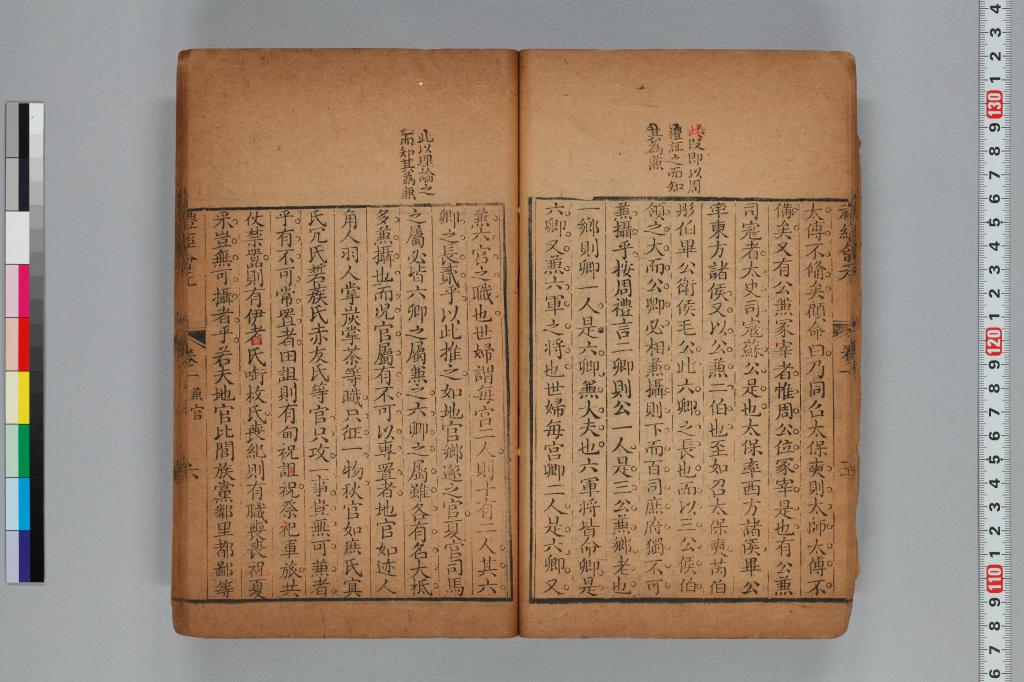 此段即以周
禮証之而知
其為兼
太傅不備矣顧命曰乃同召太保奭則太師太傅不
備矣又有公兼冢宰者惟周公位冢宰是也有公兼
司寇者太史司寇蘇公是也太保率西方諸侯畢公
率東方諸侯又以公兼二伯也至如召太保奭芮伯
彤伯畢公衛侯毛公此六卿之長也而以三公侯伯
領之大而公卿必相兼攝則下而百司庶府獨不可
兼攝乎按周禮言二鄉則公一人是三公兼鄉老也
鄉則卿一人是六卿兼大夫也六軍將皆命卿是
六卿又兼六軍之將也世婦每宮卿二人是六卿又
此以理論之
而知其為兼
兼六宮之職也世婦謂每宮二人則十有二人其六
卿之長貳乎以此推之如地官鄉遂之官夏官司馬
之屬必皆六卿之屬兼之六卿之屬雖各有名大抵
多兼攝也而況官屬有不可以專置者地官如迹人
角人羽人掌炭掌荼等職只征一物秋官如庶氏冥
氏穴氏硩蔟氏赤友氏等官只攻一事豈無可兼者
乎有不可常置者田詛則有甸祝詛祝祭祀軍旅共
仗禁嚚則有伊耆氏銜枚氏喪紀則有職喪喪祝夏
采豈無可攝者乎若夫地官比閭族黨鄰里都鄙等
卷一
兼官
六